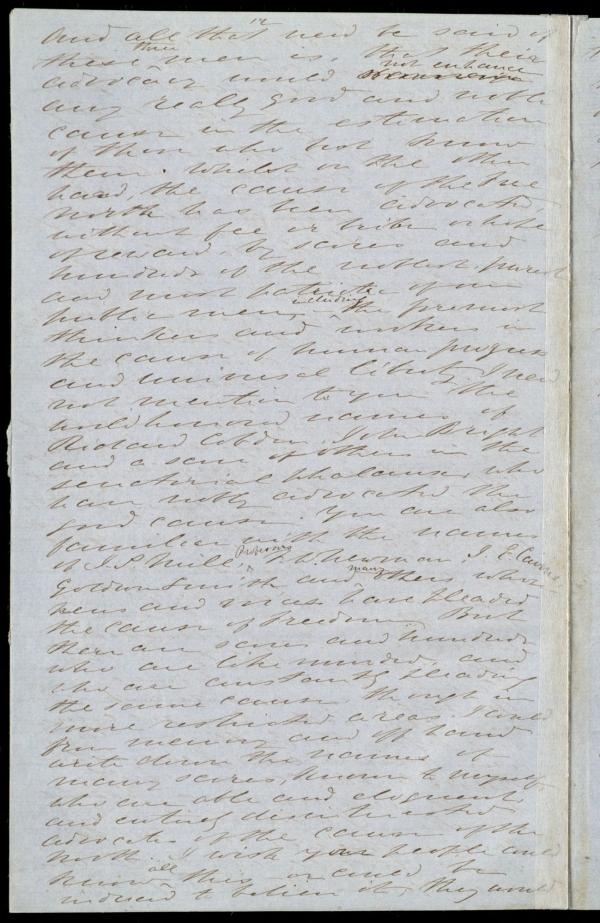 12
and all that need be said of
these three men is, that their
advocacy would not enhance
any really good and noble
cause in the estimation
of those who best know
them. Whilst on the other
hand, the cause of the true
north has been advocated,
without fee or bribe or hope
of reward, by scores and
hundreds of the noblest, purest
and most patriotic of our
public men, including the foremost
thinkers and workers in
the cause of human progress
and universal liberty. I need
not mention to you the
world honored names of
Richard Cobden, John Bright
and a score of others in the
senatorial phalanx, who
have nobly advocated the
good cause. You are also
familiar with the names
of J. S. Mill, Professors F. W. Newman, J. E. Cairnes
Goldwin Smith and many others whose
pens and voices have pleaded
the cause of Freedom. But
there are scores and hundreds
who are like minded, and
who are constantly pleading
the same cause though in
more restricted areas. I could
from memory and off hand
write down the names of
many scores, known to myself,
who are able and eloquent,
and entirely disinterested
advocates of the cause of the
north. I wish your people could
know all this or could be
induced to believe it, they would